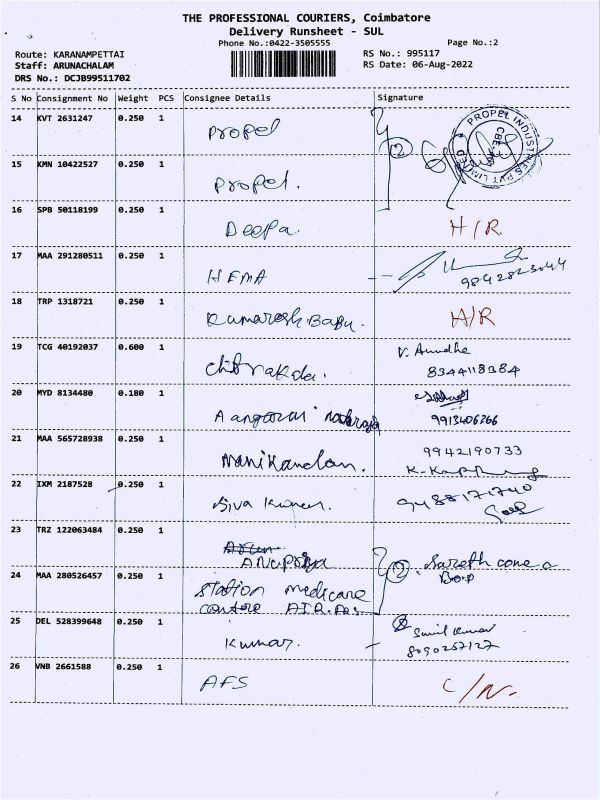 THE PROFESSIONAL COURIERS, Coimbatore
Delivery Runsheet - SUL
Phone No.:0422-3505555
Page No.:2
Route: KARANAMPETTAI
RS No.: 995117
Staff: ARUNACHALAM
RS Date: 06-Aug-2022
DRS No.: DCJB99511702
S No Consignment No Weight PCS Consignee Details Signature
14 KVT 2631247 0.250 1 Propel 2
PROPEL INDUSTRIES PVT LIMITED
CBE
15 KMN 10422527 0.250 1 Propel.
16 SPB 50118199 0.250 1 Deepa. H/R
17 MAA 291280511 0.250 1 HEMA
9842823044
18 TRP 1318721 0.250 1 Kumaresh.Babu. A/R
19 TCG 40192037 0.600 1 V. Anudha
8344118384
20 MYD 8134480 0.180 1
9913406366
21 MAA 565728938 0.250 1 Manikandan. 9942190733
22 IXM 2187528 0.250 1 Siva Kumar. 9488171740
23 TRZ 122063484 0.250 1 Arun
Anupriya 2
24 MAA 280526457 0.250 1 Station medicare
centere AIR.
25 DEL 528399648 0.250 1 Kumar. Sunil Kumar
8090257127
26 VNB 2661588 0.250 1 AFS C/N.